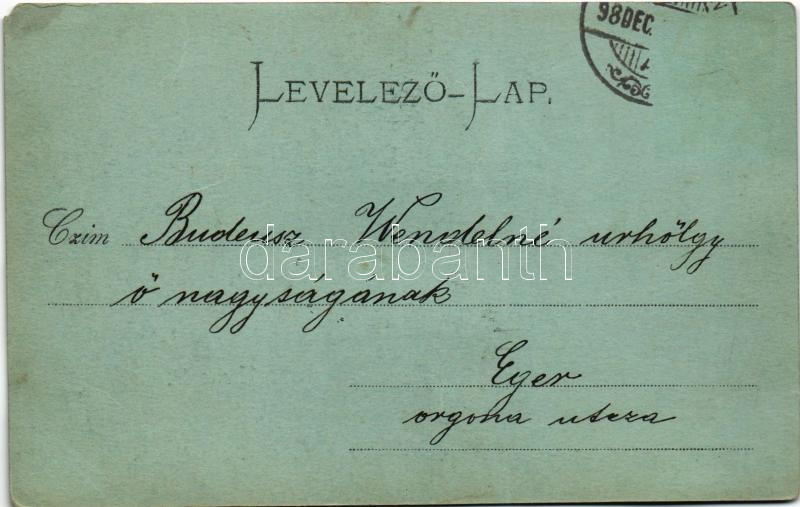 98 DEC.
LEVELEZŐ-LAP.
Czim Budeusz Wendelné urhölgy
ő nagyságának
Eger
orgona utcza
darabanth